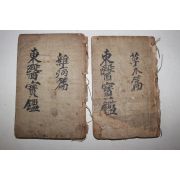 東醫寶鑑
雜病篇
東醫寶鑑
草本篇